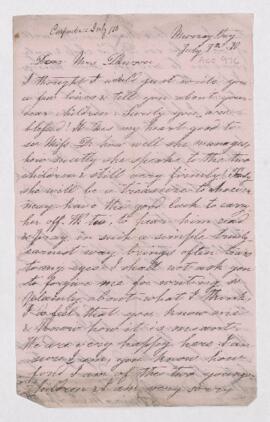 Murray Bay
July 3rd
Dear Mrs Dawson
I thought I would just write you
a few lines & tell you about your
dear children. Surely you are
blessed! It does my heart good to
see Miss D how well she manages,
how sweetly she speaks to the two
children & still very firmly!
she will be a treasure to whoever
may have the good luck to carry
her off. to hear him read
& pray in such a simple
earnest way brings often tears
to my eyes. I shall not ask you
to forgive me for writing so
plainly about what I think,
I feel that you know me
& know how it is meant.
We are very happy here I am
sure I am, you know how
fond I am of the two young
children & I am very sorry